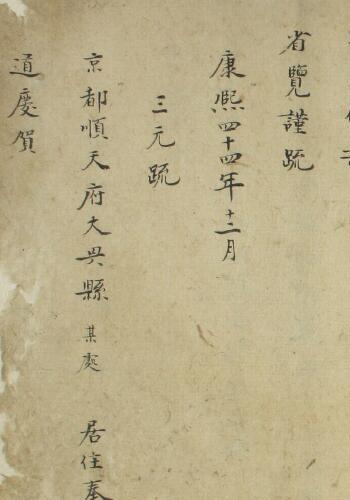 省覽謹疏
康熙四十四年十二月
三元疏
京都順天府大兴縣某處 居住奉
道慶賀